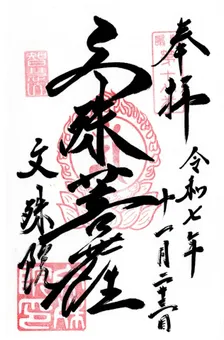 奉拝
令和七年
十一月二十三日
文殊菩薩
文殊院